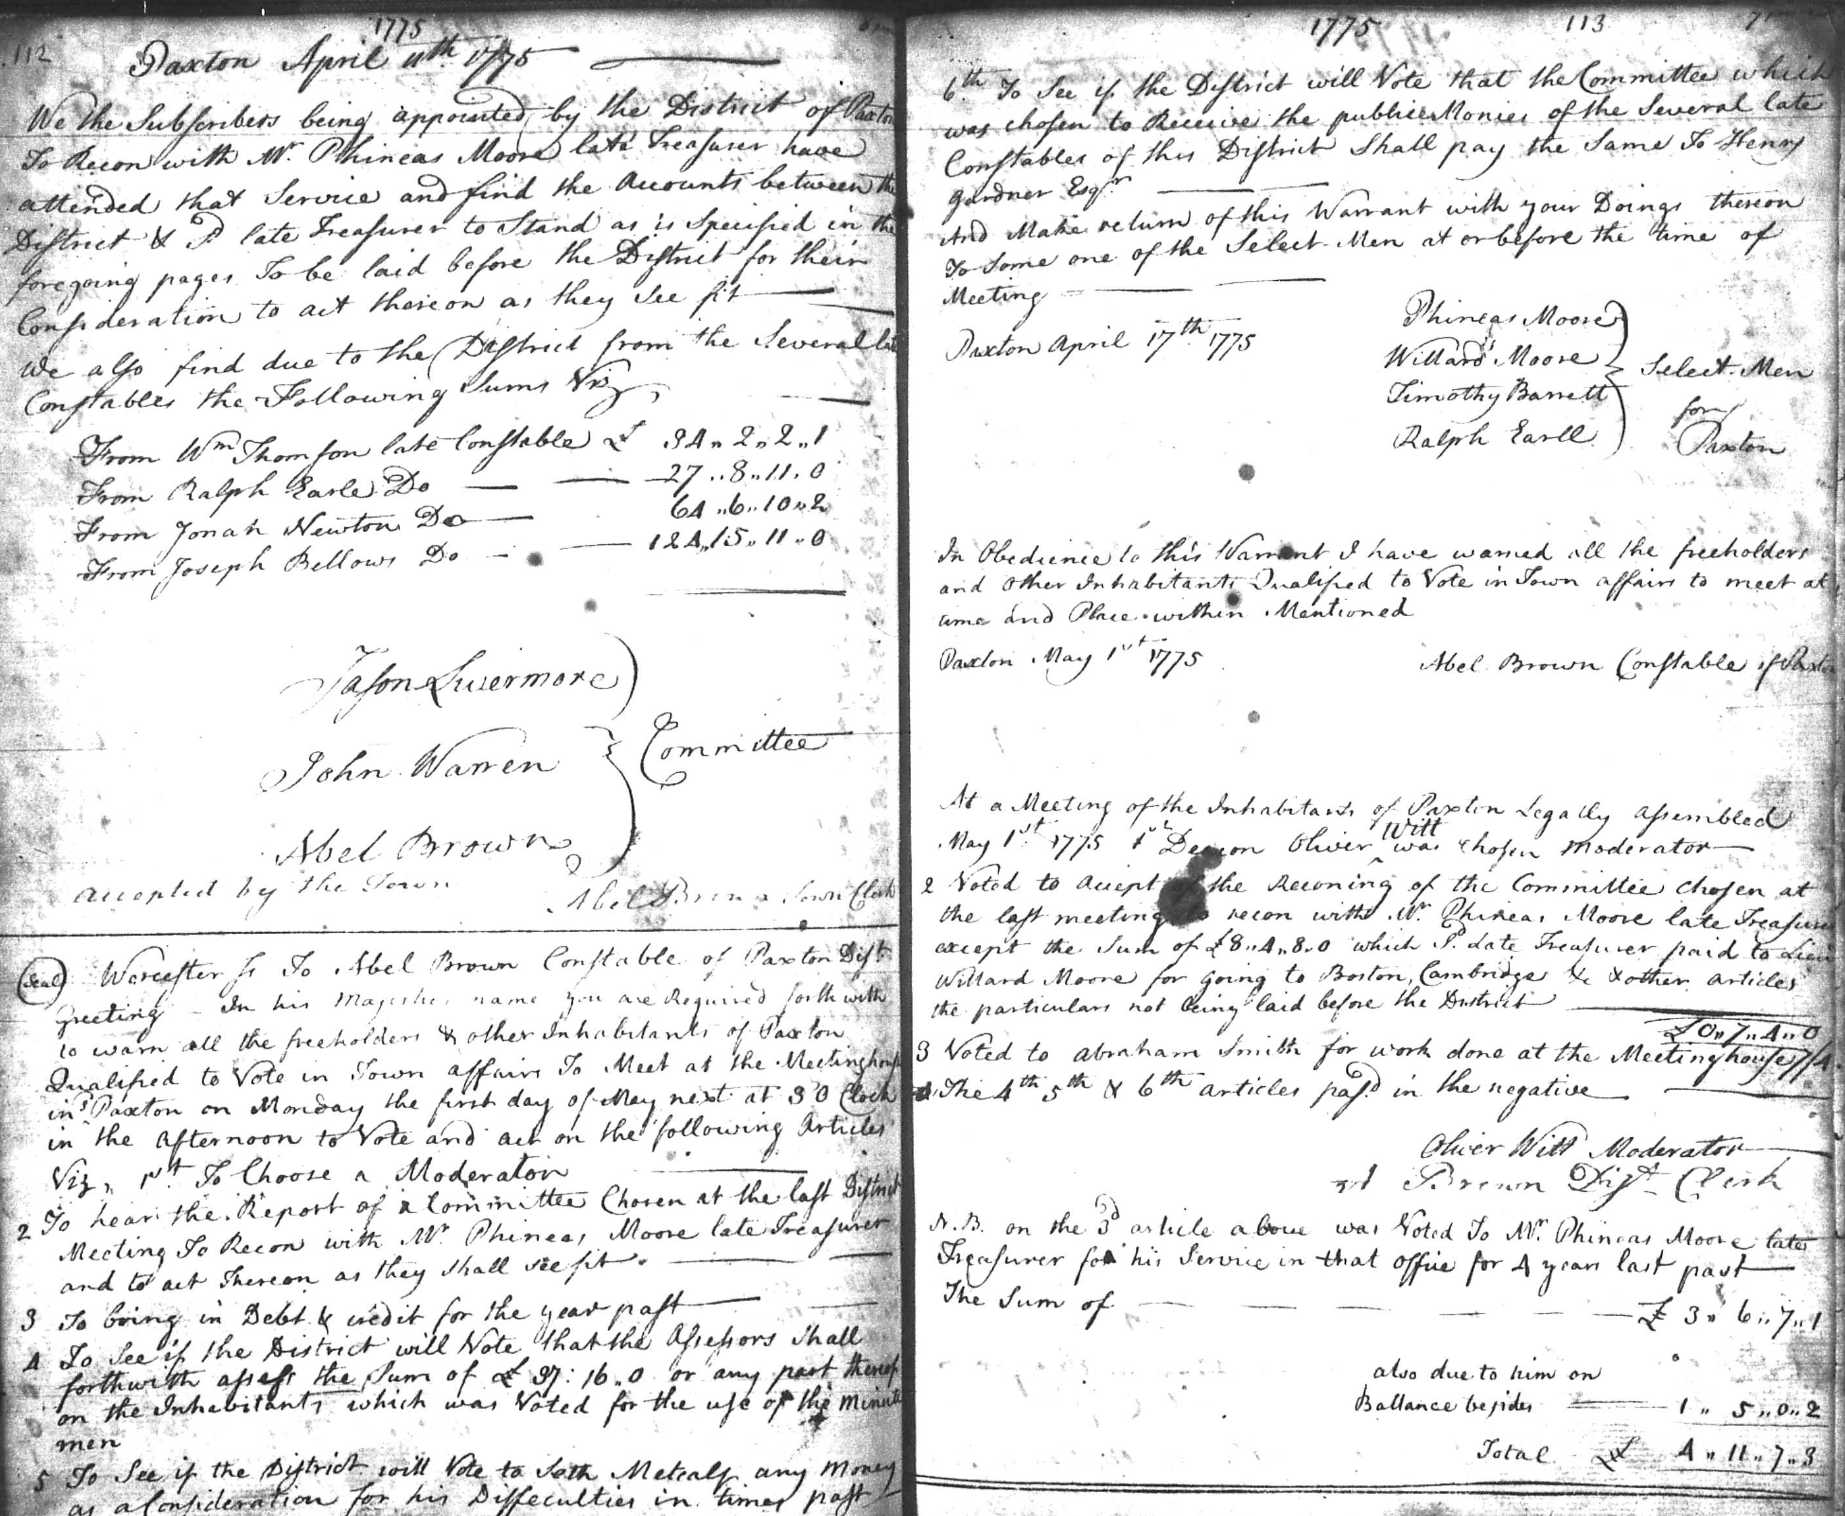 112
1775
Paxton April 11th 1775
We the Subscribers being appointed by the District of Paxton
To Recon with Mr. Phineas Moore late Treasurer have
attended that Service and find the Accounts between the
District & Sd late Treasurer to Stand as is Specified in the
foregoing pages To be laid before the District for their
Consideration to act thereon as they See fit
We also find due to the District from the Several late
Constables the Following Sums Viz,
From Wm Thomson late Constable £ 34,, 2,, 2,, 1
From Ralph Earle Do 27,, 8,, 11,, 0
From Jonah Newton Do 64,, 6,, 10,, 2
From Joseph Bellows Do 124,, 15,, 11,, 0
Jason Livermore
John Warren
Committee
Abel Brown
accepted by the Town
Abel Brown Town Clerk
(Seal) Worcester Ss To Abel Brown Constable of Paxton Dist
Greeting In his Majesties name you are Required forthwith
to warn all the freeholders & other Inhabitants of Paxton
Qualified to Vote in Town affairs To Meet at the Meetinghouse
in Sd Paxton on Monday the first day of May next at 3 O Clock
in the afternoon to Vote and act on the following Articles
Viz, 1st To Choose a Moderator
2 To hear the Report of a Committee Chosen at the last District
Meeting To Recon with Mr Phineas Moore late Treasurer
and to act Thereon as they shall see fit.
3 To bring in Debt & credit for the year past
4 To See if the District will Vote that the Assessors Shall
forthwith assess the Sum of £ 37: 16,, 0 or any part thereof
on the Inhabitants which was Voted for the use of the Minute
men
5 To See if the District will Vote to Seth Metcalf any Money
as a Consideration for his Diffeculties in times past
1775
113
6th To See if the District will Vote that the Committee which
was chosen to Receive the publice Monies of the Several late
Constables of this District Shall pay the Same To Henry
Gardner Esqr
And Make return of this Warrant with your Doings thereon
To Some one of the Select Men at or before the time of
Meeting
Paxton April 17th 1775
Phineas Moore
Willard Moore
Timothy Barrett
Ralph Earll
Select Men
for
Paxton
In Obedience to this Warrant I have warned all the freeholders
and other Inhabitants Qualified to Vote in Town affairs to meet at
time and Place within Mentioned
Paxton May 1st 1775
Abel Brown Constable of Paxton
At a Meeting of the Inhabitants of Paxton Legally assembled
May 1st 1775 1st Deacon Oliver Witt was Chosen Moderator
2 Voted to Accept of the Reconing of the Committee Chosen at
the last meeting to recon with Mr Phineas Moore late Treasurer
except the Sum of £8,, 4,, 8,, 0 which Sd late Treasurer paid to Lieu
Willard Moore for going to Boston, Cambridge &c & other articles
the particulars not being laid before the District
£ 0,, 7,, 4,, 0
3 Voted to Abraham Smith for work done at the Meetinghouse 7/4
4 The 4th 5th & 6th articles passd in the negative
Oliver Witt Moderator
A Brown Dist Clerk
N.B. on the 3d article above was Voted To Mr Phineas Moore late
Treasurer for his Service in that office for 4 years last past
The Sum of £ 3,, 6,, 7,, 1
also due to him on
Ballance besides 1,, 5,, 0,, 2
Total £ 4,, 11,, 7,, 3